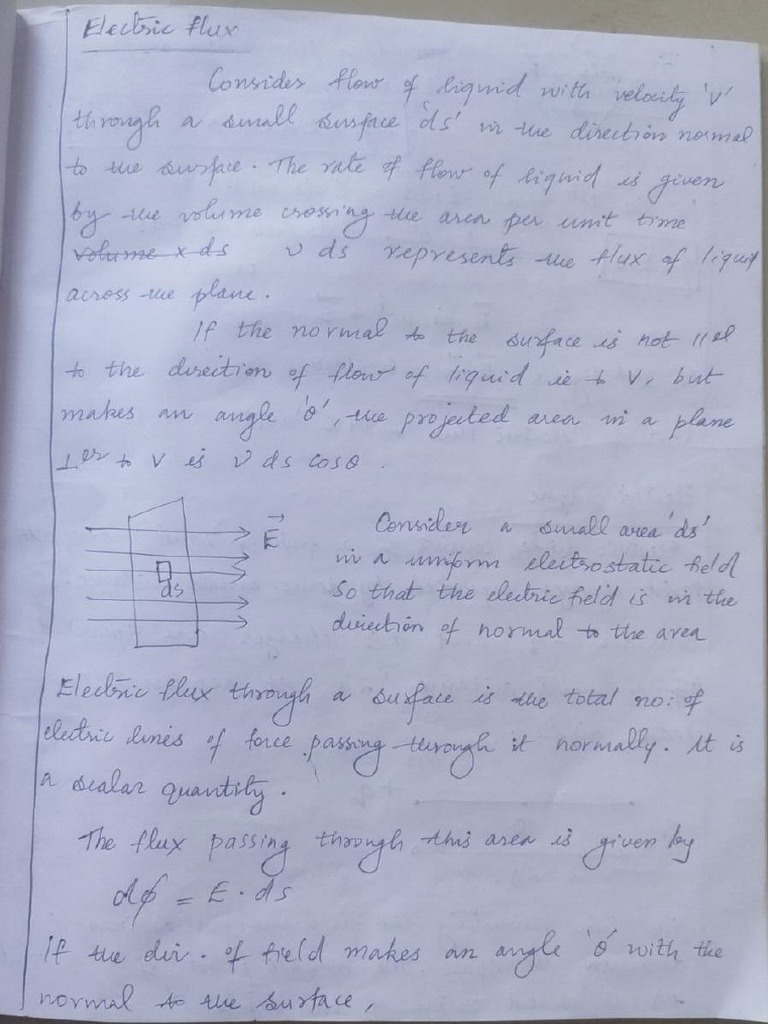 Electric flux
Consider flow of liquid with velocity 'v'
through a small surface 'ds' in the direction normal
to the surface. The rate of flow of liquid is given
by the volume crossing the area per unit time
volume x ds v ds represents the flux of liquid
across the plane.
If the normal to the surface is not ||el
to the direction of flow of liquid ie to V, but
makes an angle 'θ', the projected area in a plane
⊥er to V is v ds cosθ.
E
ds
Consider a small area 'ds'
in a uniform electrostatic field
so that the electric field is in the
direction of normal to the area
Electric flux through a surface is the total no: of
electric lines of force passing through it normally. It is
a scalar quantity.
The flux passing through this area is given by
dφ = E · ds
If the dir. of field makes an angle 'θ' with the
normal to the surface,